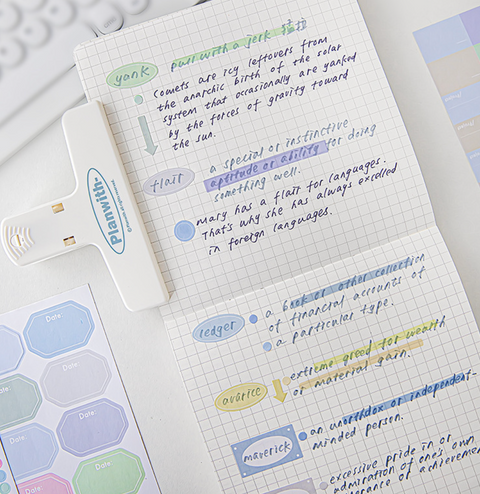 yank
pull with a jerk
Comets are icy leftovers from
the anarchic birth of the solar
system that occasionally are yanked
by the forces of gravity toward
the sun.
flair
a special or instinctive
aptitude or ability for doing
something well.
Mary has a flair for languages.
That's why she has always excelled
in foreign languages.
Planwith
ledger
a book or other collection
of financial accounts of
a particular type.
avarice
extreme greed for wealth
or material gain.
maverick
an unorthdox or independent-
minded person.
excessive pride in or
admiration of one's own
achievemen
Date:
Date:
Date:
Date:
Date: